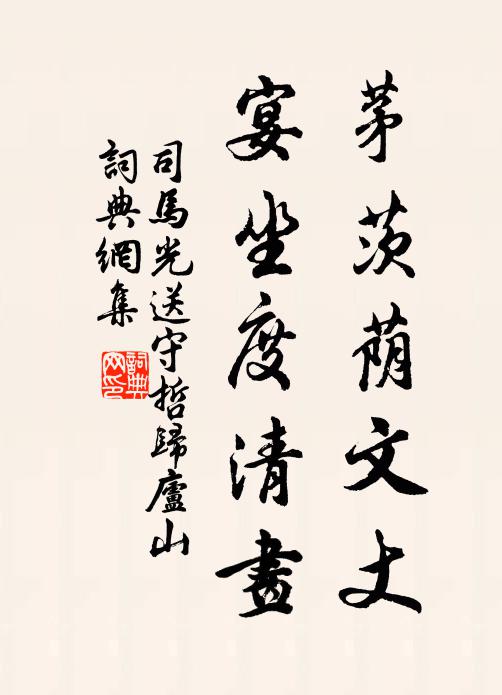 茅茨荫文丈
宴坐度清晝
司馬光送守哲歸廬山
詞典網集
詞典网印